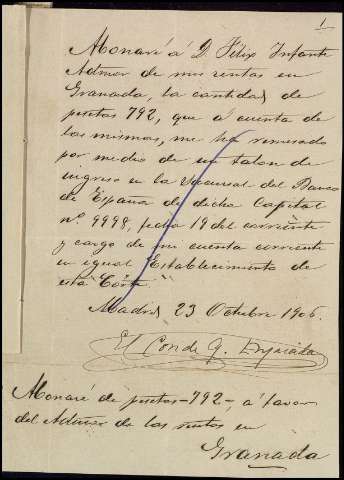 1
Abonaré á D. Félix Infante
Admor de mis rentas en
Granada, la cantidad de
pesetas 792, que á cuenta de
las mismas, me ha remesado
por medio de un talon de
ingreso en la Sucursal del Banco
de España de dicha Capital
nº 9998, fecha 19 del corriente
y cargo de mi cuenta corriente
en igual Establecimiento de
esta Córte.
Madrid 23 Octubre 1906.
El Conde G.
Abonaré de pesetas-792-, á favor
del Admor de las rentas en
Granada